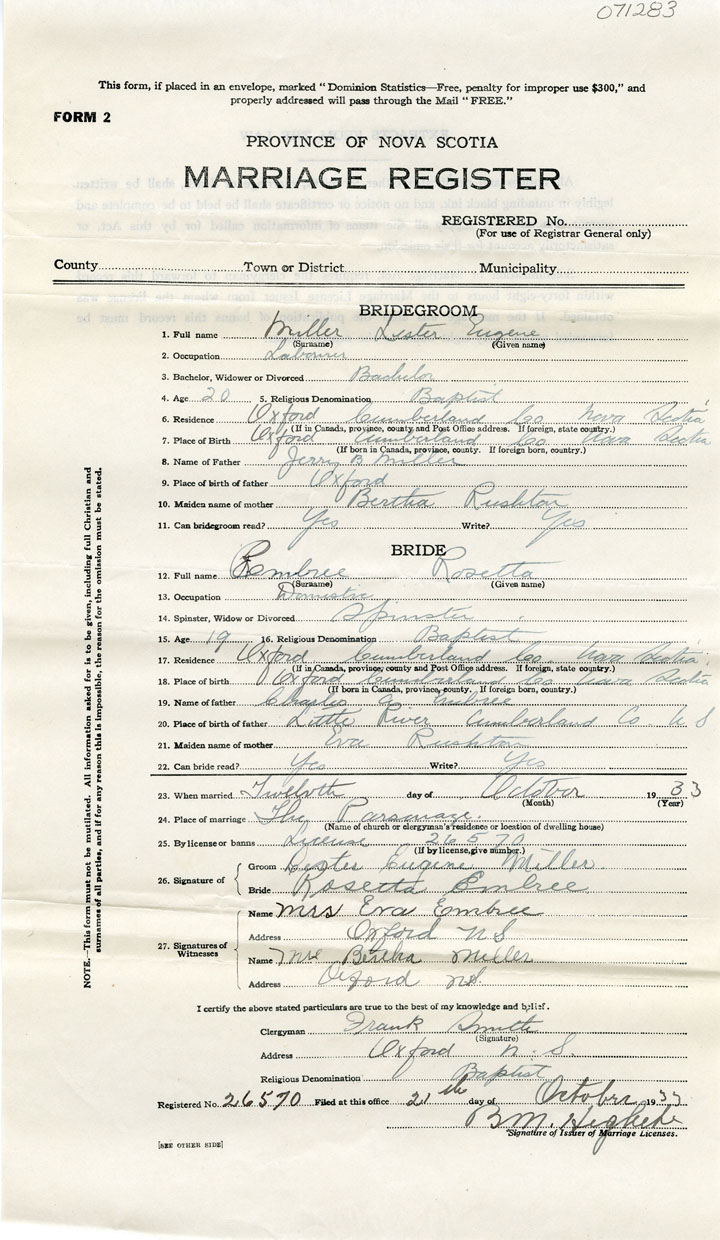 071283
This form, if placed in an envelope, marked "Dominion Statistics—Free, penalty for improper use $300," and
properly addressed will pass through the Mail "FREE."
FORM 2
PROVINCE OF NOVA SCOTIA
MARRIAGE REGISTER
REGISTERED No.
(For use of Registrar General only)
County Town or District Municipality
BRIDEGROOM
1. Full name Miller Lester Eugene
(Surname) (Given name)
2. Occupation Labourer
3. Bachelor, Widower or Divorced Bachelor
4. Age 20 5. Religious Denomination Baptist
6. Residence Oxford Cumberland Co. Nova Scotia
(If in Canada, province, county, and Post Office address. If foreign, state country.)
7. Place of Birth Oxford Cumberland Co. Nova Scotia
(If born in Canada, province, county. If foreign born, country.)
8. Name of Father Jerry B Miller
9. Place of birth of father Oxford
10. Maiden name of mother Bertha Rushton
11. Can bridegroom read? Yes Write? Yes
BRIDE
12. Full name Embree Rosetta
(Surname) (Given name)
13. Occupation Domestic
14. Spinster, Widow or Divorced Spinster
15. Age 19 16. Religious Denomination Baptist
17. Residence Oxford Cumberland Co. Nova Scotia
(If in Canada, province, county and Post Office address. If foreign, state country.)
18. Place of birth Oxford Cumberland Co Nova Scotia
(If born in Canada, province, county. If foreign born, country.)
19. Name of father Charles A Embree
20. Place of birth of father Little River Cumberland Co. N S
21. Maiden name of mother Eva Rushton
22. Can bride read? Yes Write? Yes
23. When married Twelvth day of October 1933
(Month) (Year)
24. Place of marriage The Parsonage.
(Name of church or clergyman's residence or location of dwelling house)
25. By license or banns License 26570
(If by license, give number.)
26. Signature of Groom Lester Eugene Miller
Bride Rosetta Embree
27. Signatures of Witnesses Name Mrs Eva Embree
Address Oxford N S
Name Mrs Bertha Miller
Address Oxford N.S.
I certify the above stated particulars are true to the best of my knowledge and belief.
Clergyman Frank Smith
(Signature)
Address Oxford N. S.
Religious Denomination Baptist
Registered No. 26570 Filed at this office 21st day of October 1933
B.M.
Signature of Issuer of Marriage Licenses.
[SEE OTHER SIDE]
NOTE.—This form must not be mutilated. All information asked for is to be given, including full Christian and
surnames of all parties, and if for any reason this is impossible, the reason for the omission must be stated.